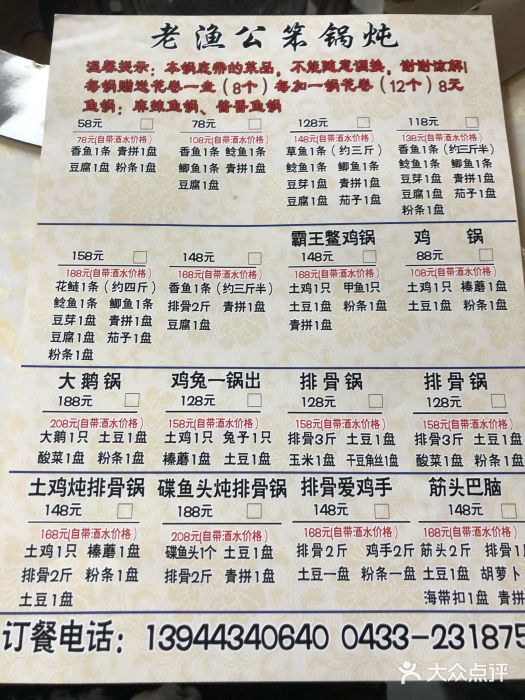 老渔公笨锅炖
温馨提示：本锅底带的菜品，不能随意调换，谢谢谅解！
每锅赠送花卷一盘（8个）每加一锅花卷（12个）8元
鱼锅：麻辣鱼锅、酱香鱼锅
58元 78元 128元 118元
78元(自带酒水价格) 108元(自带酒水价格) 148元(自带酒水价格) 138元(自带酒水价格)
香鱼1条 青拼1盘 香鱼1条 鲶鱼1条 草鱼1条（约三斤） 香鱼1条（约三斤半）
豆腐1盘 粉条1盘 鲫鱼1条 青拼1盘 鲶鱼1条 鲫鱼1条 鲶鱼1条 鲫鱼1条
豆腐1盘 豆芽1盘 青拼1盘 豆芽1盘 青拼1盘
豆腐1盘 茄子1盘 豆腐1盘 茄子1盘
粉条1盘
霸王鳖鸡锅 鸡锅
158元 148元 148元 88元
188元(自带酒水价格) 168元(自带酒水价格) 168元(自带酒水价格) 108元(自带酒水价格)
花鲢1条（约四斤） 香鱼1条（约三斤半） 土鸡1只 甲鱼1只 土鸡1只 榛蘑1盘
鲶鱼1条 鲫鱼1条 排骨2斤 青拼1盘 土豆1盘 粉条1盘 土豆1盘 粉条1盘
豆芽1盘 青拼1盘 豆腐1盘 青拼1盘
豆腐1盘 茄子1盘
粉条1盘
大鹅锅 鸡兔一锅出 排骨锅 排骨锅
188元 128元 128元 128元
208元(自带酒水价格) 158元(自带酒水价格) 158元(自带酒水价格) 158元(自带酒水价格)
大鹅1只 土豆1盘 土鸡1只 兔子1只 排骨3斤 土豆1盘 排骨3斤 土豆1盘
酸菜1盘 粉条1盘 榛蘑1盘 土豆1盘 玉米1盘 干豆角丝1盘 酸菜1盘 粉条1盘
土鸡炖排骨锅 碟鱼头炖排骨锅 排骨爱鸡手 筋头巴脑
148元 188元 148元 148元
168元(自带酒水价格) 208元(自带酒水价格) 168元(自带酒水价格) 168元(自带酒水价格)
土鸡1只 榛蘑1盘 碟鱼头1个 土豆1盘 排骨2斤 鸡手2斤 筋头2斤 排骨1
排骨2斤 粉条1盘 排骨2斤 青拼1盘 土豆一盘 粉条一盘 土豆1盘 胡萝卜
土豆1盘 海带扣1盘 青拼
订餐电话：13944340640 0433-231875
大众点评